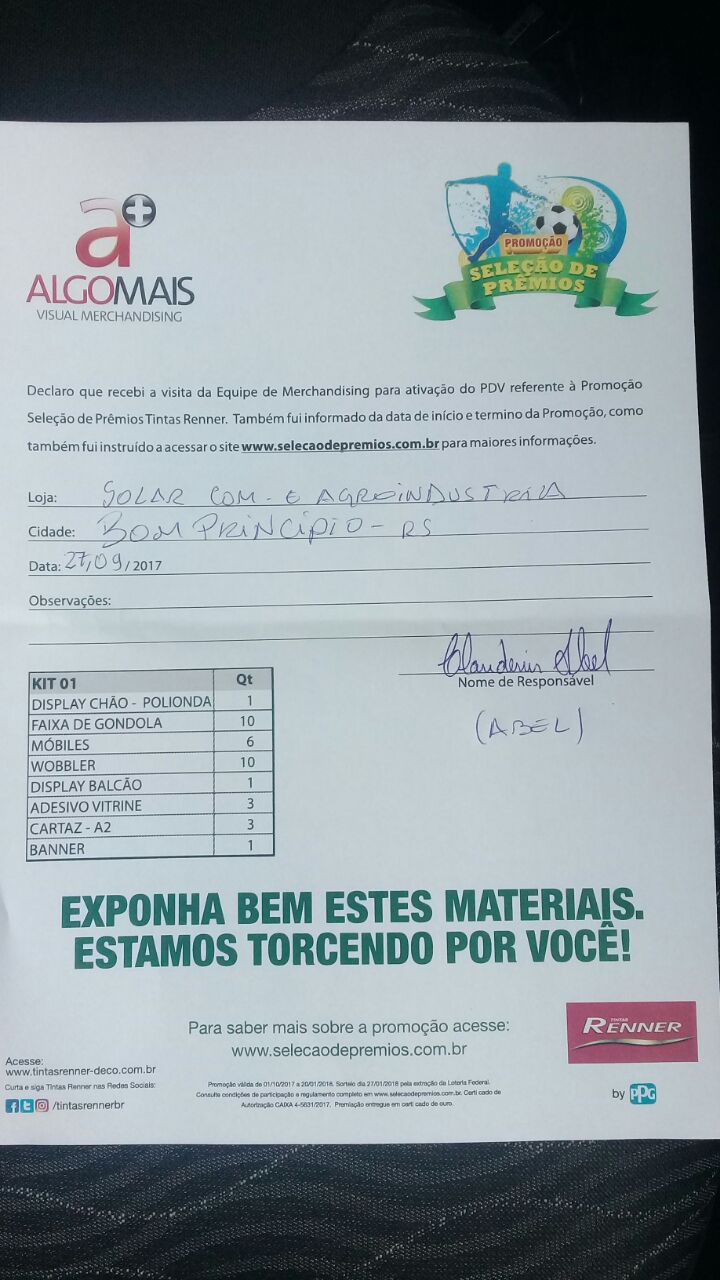 a+
ALGOMAIS
VISUAL MERCHANDISING
PROMOÇÃO
SELEÇÃO DE
PRÊMIOS
Declaro que recebi a visita da Equipe de Merchandising para ativação do PDV referente à Promoção
Seleção de Prêmios Tintas Renner. Também fui informado da data de início e termino da Promoção, como
também fui instruído a acessar o site www.selecaodepremios.com.br para maiores informações.
Loja: SOLAR COM. E AGROINDUSTRIA
Cidade: BOM PRINCÍPIO - RS
Data: 27/09/2017
Observações:
Clauderir Abel
Nome de Responsável
(ABEL)
KIT 01 Qt
DISPLAY CHÃO - POLIONDA 1
FAIXA DE GONDOLA 10
MÓBILES 6
WOBBLER 10
DISPLAY BALCÃO 1
ADESIVO VITRINE 3
CARTAZ - A2 3
BANNER 1
EXPONHA BEM ESTES MATERIAIS.
ESTAMOS TORCENDO POR VOCÊ!
Para saber mais sobre a promoção acesse:
www.selecaodepremios.com.br
TINTAS
RENNER
by PPG
Acesse:
www.tintasrenner-deco.com.br
Curta e siga Tintas Renner nas Redes Sociais:
/tintasrennerbr
Promoção válida de 01/10/2017 a 20/01/2018. Sorteio dia 27/01/2018 pela extração da Loteria Federal.
Consulte condições de participação e regulamento completo em www.selecaodepremios.com.br. Certi cado de
Autorização CAIXA 4-5631/2017. Premiação entregue em certi cado de ouro.